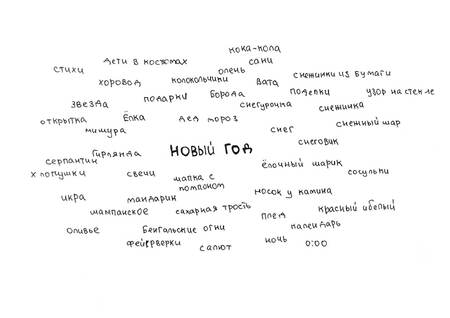 кока-кола
дети в костюмах
сани
стихи
олень
хоровод
колокольчики
вата
снежинки из бумаги
подарки
борода
поделки
узор на стекле
звезда
снегурочка
снежинка
открытка
Ёлка
дед мороз
снежный шар
мишура
снег
Гирлянда
НОВЫЙ ГОД
снеговик
серпантин
ёлочный шарик
хлопушки
свечи
шапка с
помпоном
сосульки
икра
мандарин
носок у камина
шампанское
сахарная трость
плед
красный и белый
оливье
Бенгальские огни
календарь
фейерверки
салют
ночь
0:00